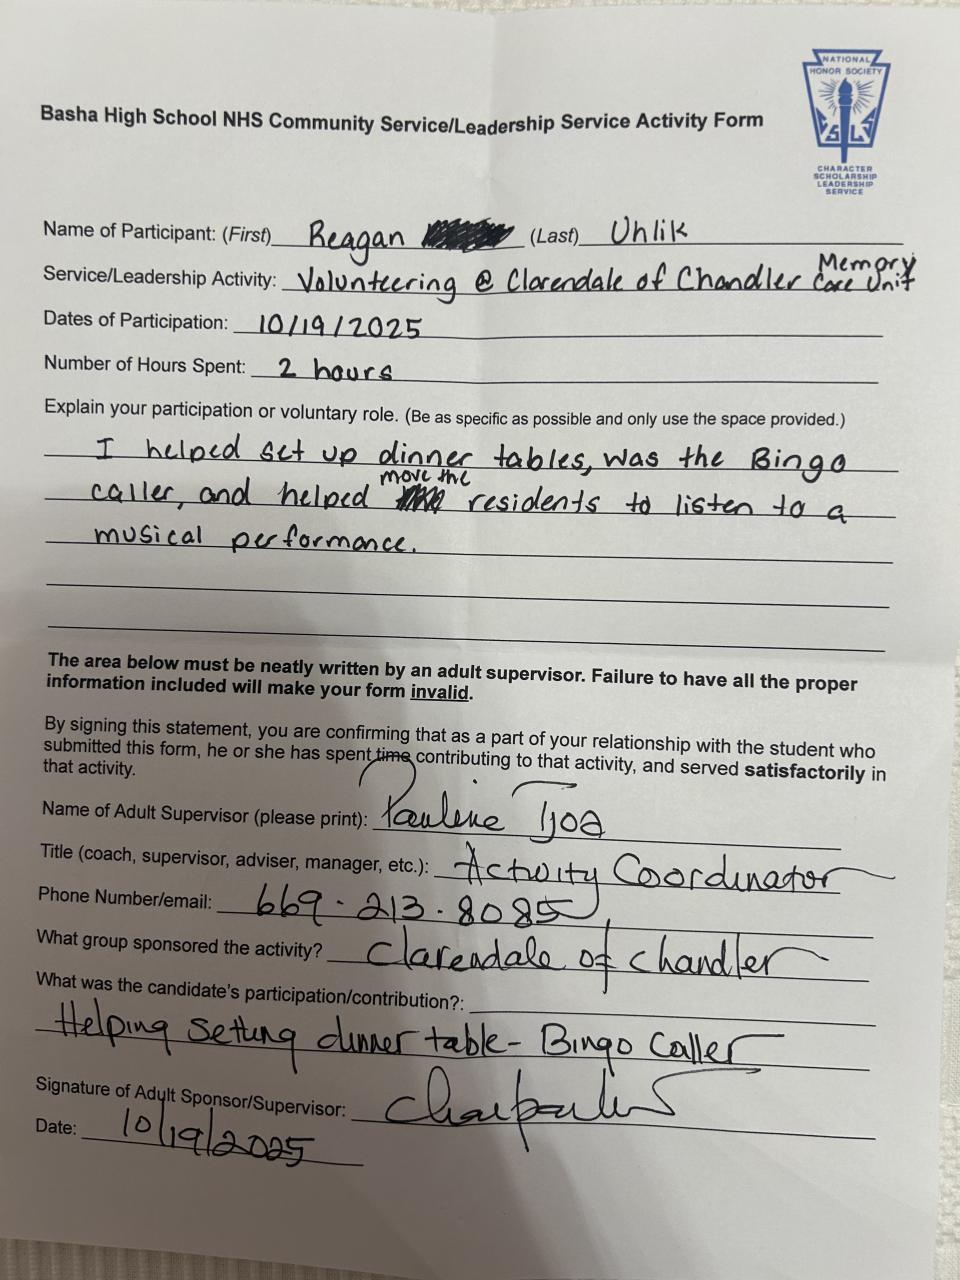 NATIONAL
HONOR SOCIETY
S L S
CHARACTER
SCHOLARSHIP
LEADERSHIP
SERVICE
Basha High School NHS Community Service/Leadership Service Activity Form
Name of Participant: (First) Reagan (Last) Uhlik
Service/Leadership Activity: Volunteering @ Clarendale of Chandler Memory Care Unit
Dates of Participation: 10/19/2025
Number of Hours Spent: 2 hours
Explain your participation or voluntary role. (Be as specific as possible and only use the space provided.)
I helped set up dinner tables, was the Bingo
caller, and helped move the residents to listen to a
musical performance.
The area below must be neatly written by an adult supervisor. Failure to have all the proper
information included will make your form invalid.
By signing this statement, you are confirming that as a part of your relationship with the student who
submitted this form, he or she has spent time contributing to that activity, and served satisfactorily in
that activity.
Name of Adult Supervisor (please print): Pauline Tjoa
Title (coach, supervisor, adviser, manager, etc.): Activity Coordinator
Phone Number/email: 669-213-8085
What group sponsored the activity? Clarendale of chandler
What was the candidate's participation/contribution?:
Helping setting dinner table - Bingo Caller
Signature of Adult Sponsor/Supervisor:
Date: 10/19/2025